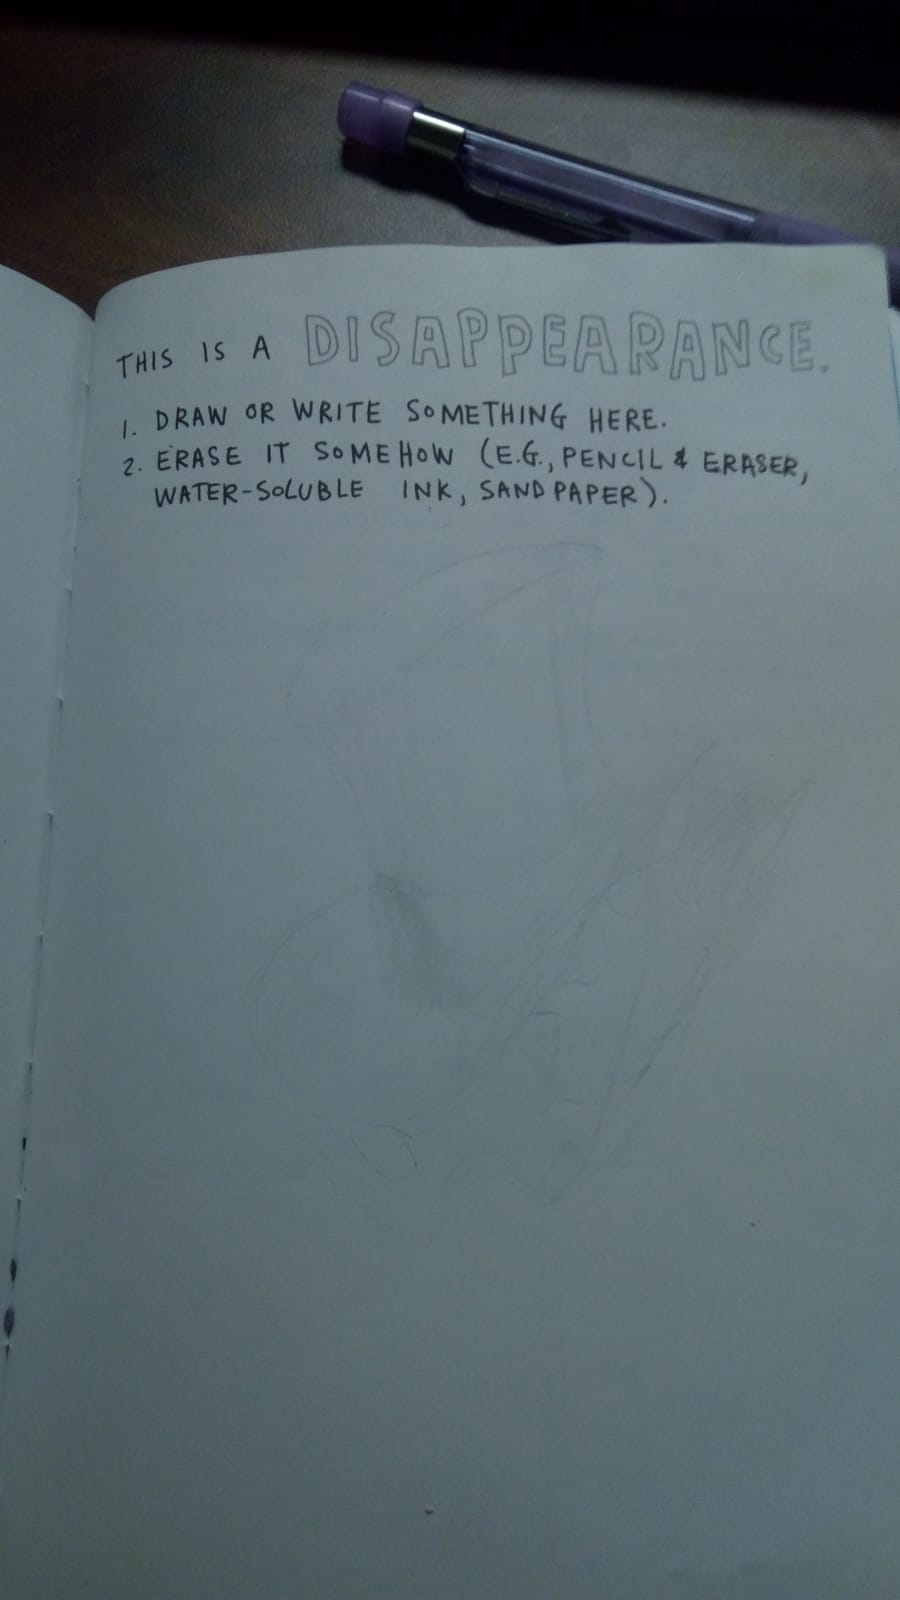 THIS IS A DISAPPEARANCE.
1. DRAW OR WRITE SOMETHING HERE.
2. ERASE IT SOMEHOW (E.G., PENCIL & ERASER,
WATER-SOLUBLE INK, SANDPAPER).